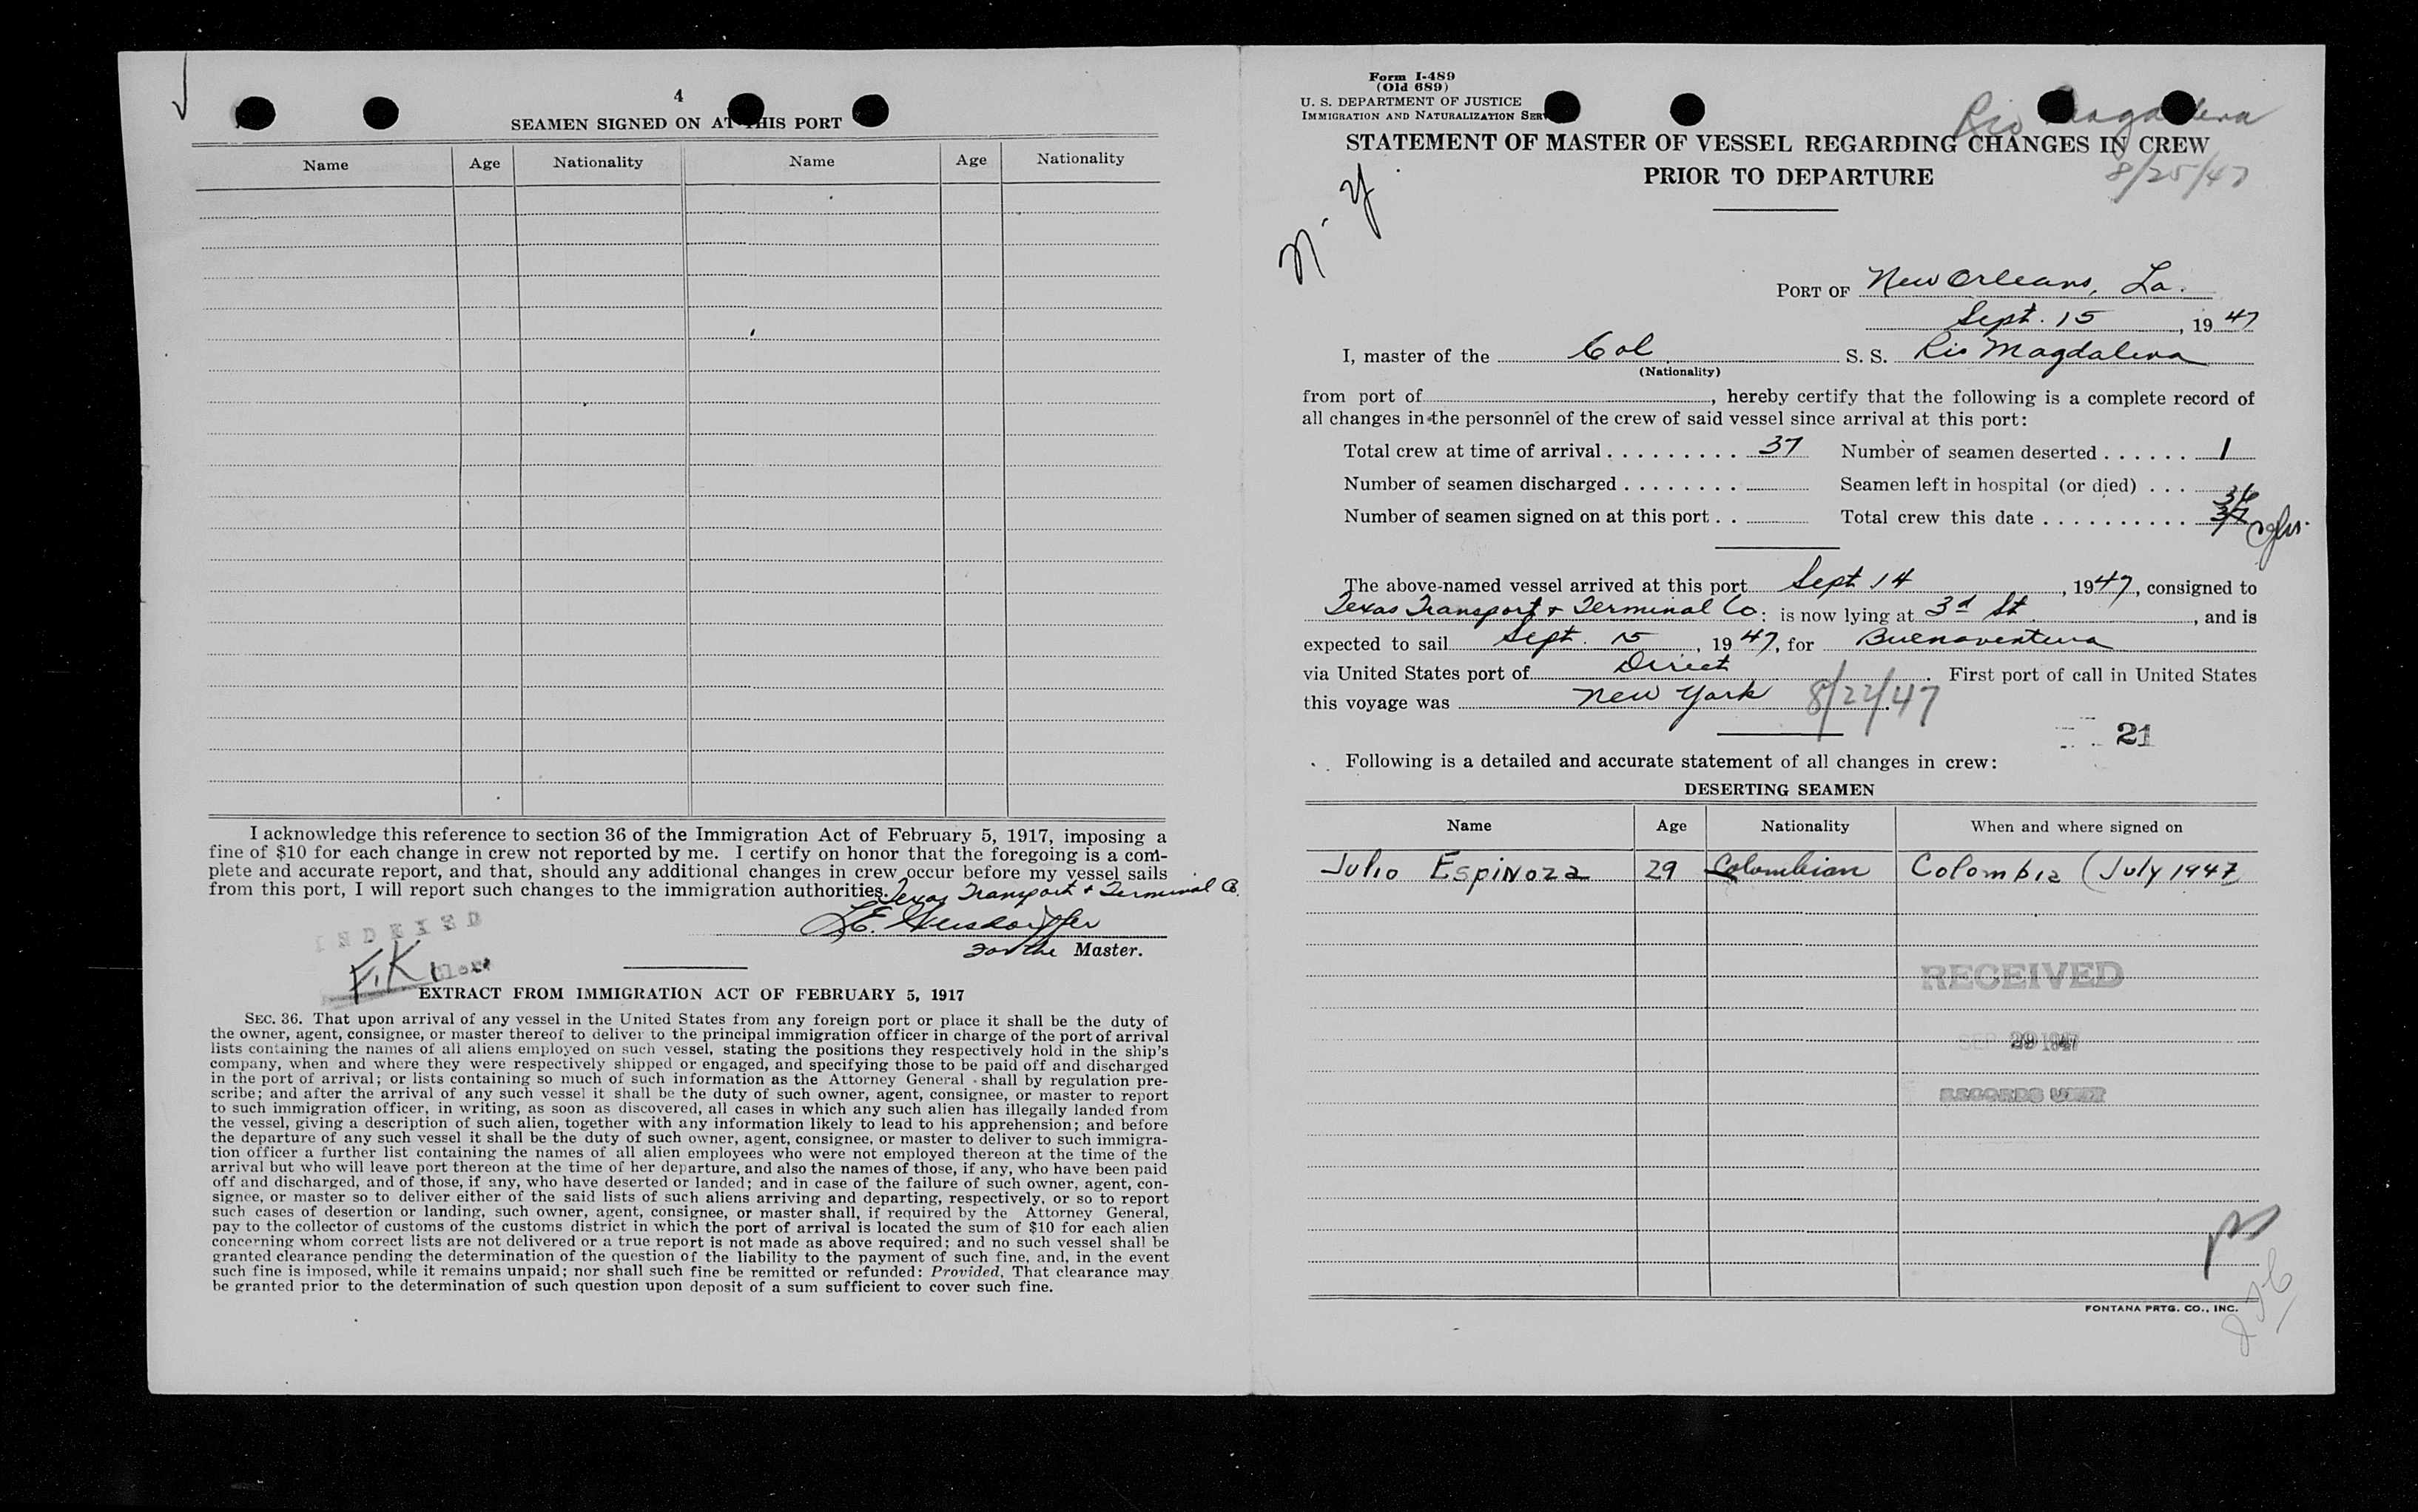 4
SEAMEN SIGNED ON AT THIS PORT
Name Age Nationality Name Age Nationality
I acknowledge this reference to section 36 of the Immigration Act of February 5, 1917, imposing a
fine of $10 for each change in crew not reported by me. I certify on honor that the foregoing is a com-
plete and accurate report, and that, should any additional changes in crew occur before my vessel sails
from this port, I will report such changes to the immigration authorities. Texas Transport & Terminal Co.
L.E.
For the Master.
INDEXED
F.K. Clerk
EXTRACT FROM IMMIGRATION ACT OF FEBRUARY 5, 1917
SEC. 36. That upon arrival of any vessel in the United States from any foreign port or place it shall be the duty of
the owner, agent, consignee, or master thereof to deliver to the principal immigration officer in charge of the port of arrival
lists containing the names of all aliens employed on such vessel, stating the positions they respectively hold in the ship's
company, when and where they were respectively shipped or engaged, and specifying those to be paid off and discharged
in the port of arrival; or lists containing so much of such information as the Attorney General shall by regulation pre-
scribe; and after the arrival of any such vessel it shall be the duty of such owner, agent, consignee, or master to report
to such immigration officer, in writing, as soon as discovered, all cases in which any such alien has illegally landed from
the vessel, giving a description of such alien, together with any information likely to lead to his apprehension; and before
the departure of any such vessel it shall be the duty of such owner, agent, consignee, or master to deliver to such immigra-
tion officer a further list containing the names of all alien employees who were not employed thereon at the time of the
arrival but who will leave port thereon at the time of her departure, and also the names of those, if any, who have been paid
off and discharged, and of those, if any, who have deserted or landed; and in case of the failure of such owner, agent, con-
signee, or master so to deliver either of the said lists of such aliens arriving and departing, respectively, or so to report
such cases of desertion or landing, such owner, agent, consignee, or master shall, if required by the Attorney General,
pay to the collector of customs of the customs district in which the port of arrival is located the sum of $10 for each alien
concerning whom correct lists are not delivered or a true report is not made as above required; and no such vessel shall be
granted clearance pending the determination of the question of the liability to the payment of such fine, and, in the event
such fine is imposed, while it remains unpaid; nor shall such fine be remitted or refunded: Provided, That clearance may
be granted prior to the determination of such question upon deposit of a sum sufficient to cover such fine.
Form I-489
(Old 689)
U. S. DEPARTMENT OF JUSTICE
IMMIGRATION AND NATURALIZATION SER
Rio Magdalena
STATEMENT OF MASTER OF VESSEL REGARDING CHANGES IN CREW
PRIOR TO DEPARTURE
8/25/47
N.Y.
PORT OF New Orleans, La.
Sept. 15, 1947
I, master of the Col S. S. Rio Magdalena
(Nationality)
from port of , hereby certify that the following is a complete record of
all changes in the personnel of the crew of said vessel since arrival at this port:
Total crew at time of arrival . . . . . . . . . 37 Number of seamen deserted . . . . . . 1
Number of seamen discharged . . . . . . . . Seamen left in hospital (or died) . . .
36
Number of seamen signed on at this port . . Total crew this date . . . . . . . . . . 37
The above-named vessel arrived at this port Sept 14, 1947, consigned to
Texas Transport & Terminal Co. is now lying at 3d St., and is
expected to sail Sept. 15, 1947, for Buenaventura
via United States port of Direct. First port of call in United States
this voyage was New York 8/22/47.
21
Following is a detailed and accurate statement of all changes in crew:
DESERTING SEAMEN
Name Age Nationality When and where signed on
Julio Espinoza 29 Colombian Colombia (July 1947
RECEIVED
SEP 29 1947
RECORDS UNIT
FONTANA PRTG. CO., INC.